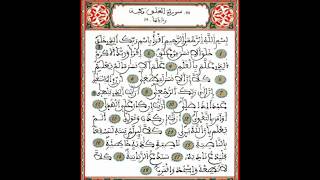 سورة العلق مكية
بسم الله الرحمن الرحيم اقرأ باسم ربك الذي خلق
خلق الإنسان من علق اقرأ وربك الأكرم الذي
علم بالقلم علم الإنسان ما لم يعلم
كلا إن الإنسان ليطغى أن رآه استغنى
إن إلى ربك الرجعى أرأيت الذي ينهى
عبدا إذا صلى أرأيت إن كان على الهدى أو
أمر بالتقوى أرأيت إن كذب وتولى ألم
يعلم بأن الله يرى كلا لئن لم ينته لنسفعا
بالناصية ناصية كاذبة خاطئة
فليدع ناديه سندع الزبانية كلا
لا تطعه واسجد واقترب